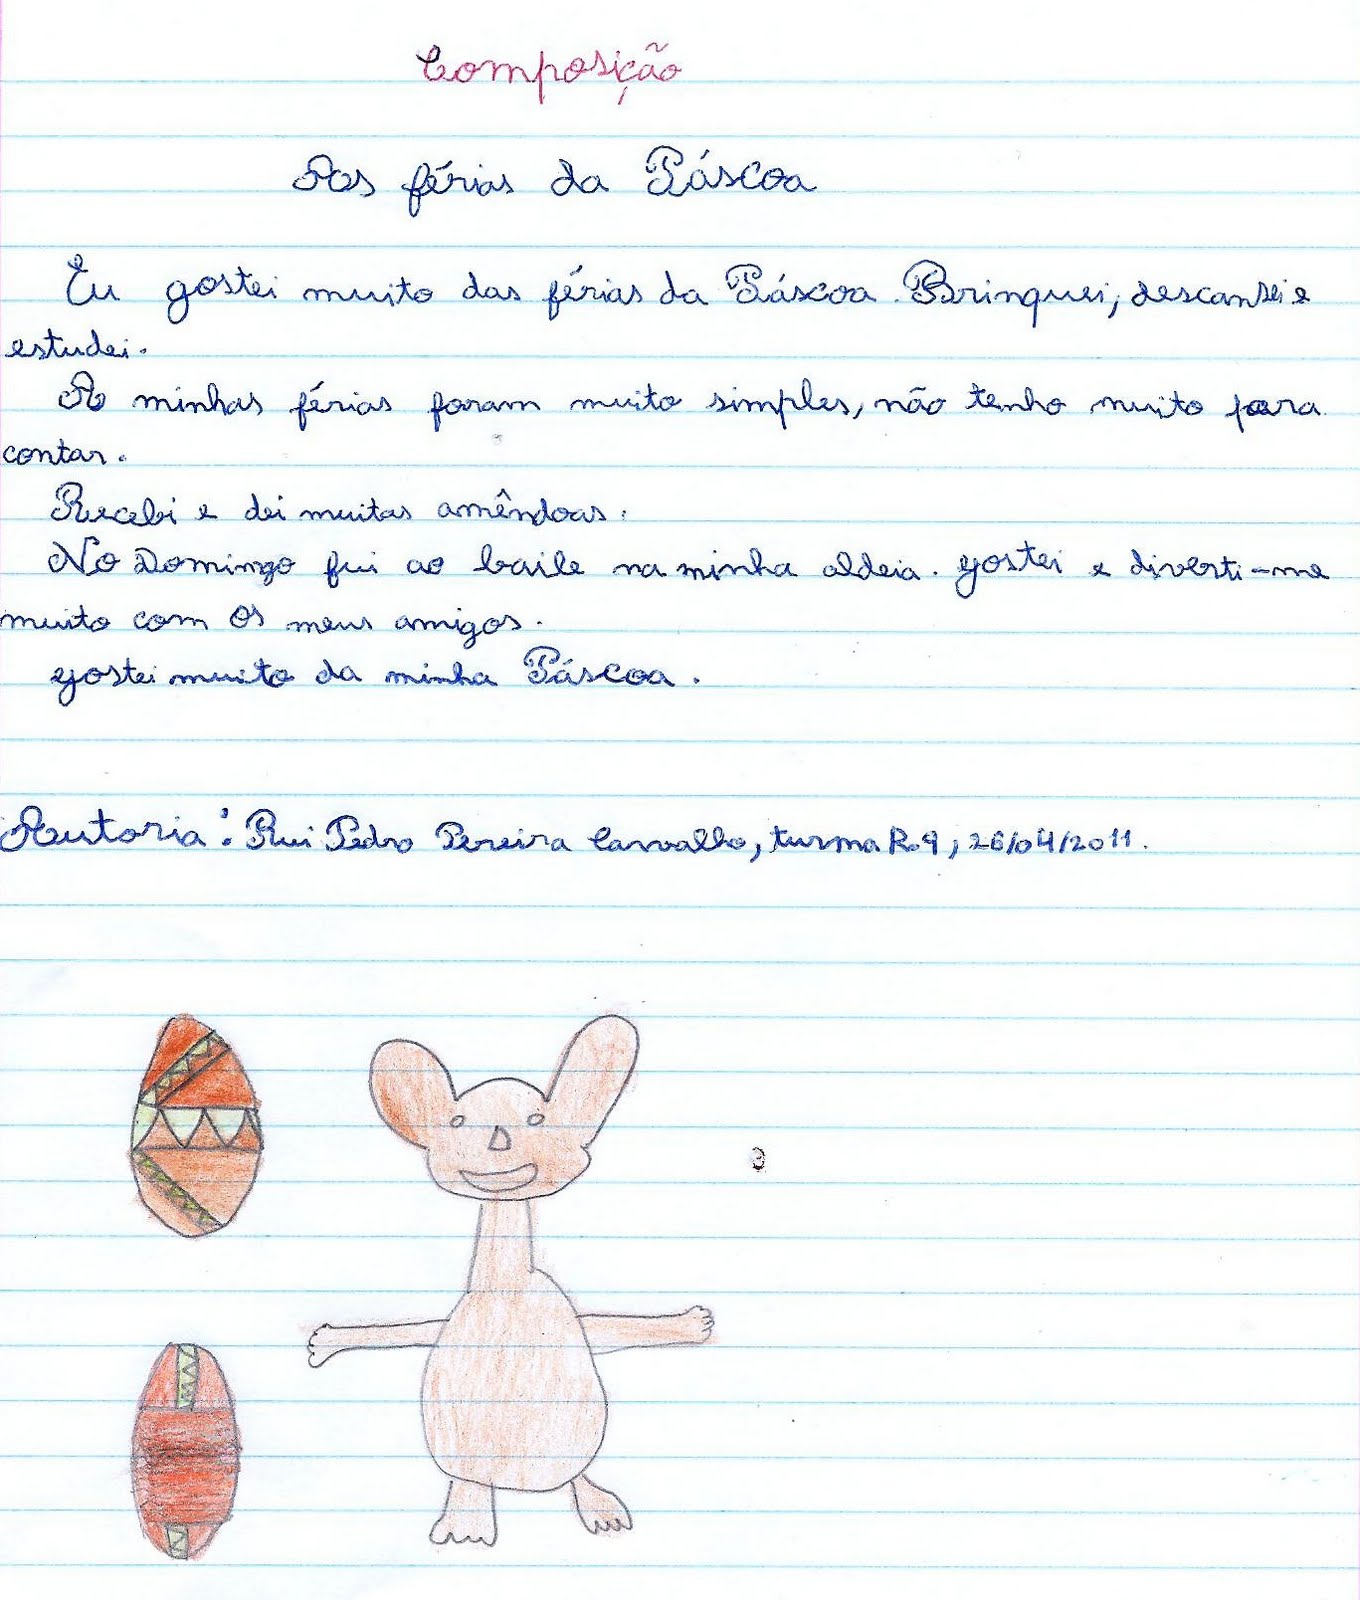 Composição
As férias da Páscoa
Eu gostei muito das férias da Páscoa. Brinquei, descansei e
estudei.
A minhas férias foram muito simples, não tenho muito para
contar.
Recebi e dei muitas amêndoas.
No Domingo fui ao baile na minha aldeia. gostei e diverti-me
muito com os meus amigos.
gostei muito da minha Páscoa.
Autoria: Rui Pedro Pereira Carvalho, turma R.9, 26/04/2011.